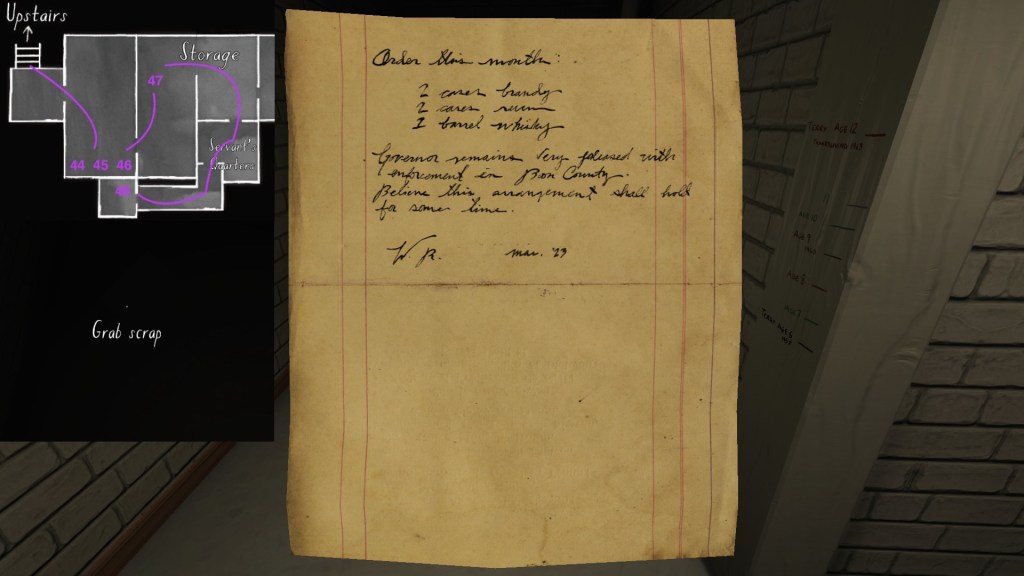 Upstairs
Storage
47
44 45 46
Servant's
Quarters
48
Grab scrap
Order this month:
2 cases brandy
2 cases rum
1 barrel whisky
Governor remains very pleased with
enforcement in Boon County.
Believe this arrangement shall hold
for some time.
W. R. mar. '23